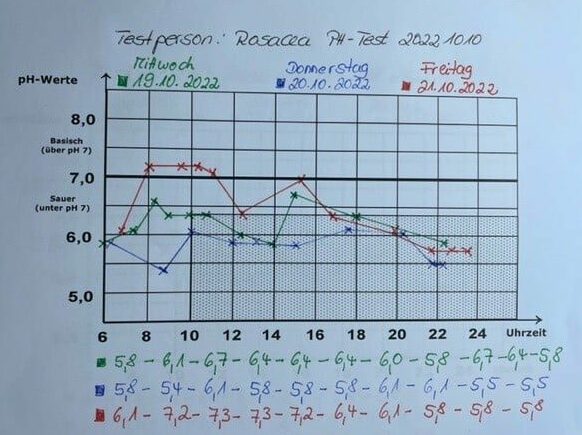 Testperson: Rosacea PH-Test 20221010
Mittwoch Donnerstag Freitag
19.10.2022 20.10.2022 21.10.2022
pH-Werte
8,0
Basisch
(über pH 7)
7,0
Sauer
(unter pH 7)
6,0
5,0
6 8 10 12 14 16 18 20 22 24 Uhrzeit
5,8 - 6,1 - 6,7 - 6,4 - 6,4 - 6,4 - 6,0 - 5,8 - 6,7 - 6,4 - 5,8
5,8 - 5,4 - 6,1 - 5,8 - 5,8 - 5,8 - 6,1 - 6,1 - 5,5 - 5,5
6,1 - 7,2 - 7,3 - 7,3 - 7,2 - 6,4 - 6,1 - 5,8 - 5,8 - 5,8